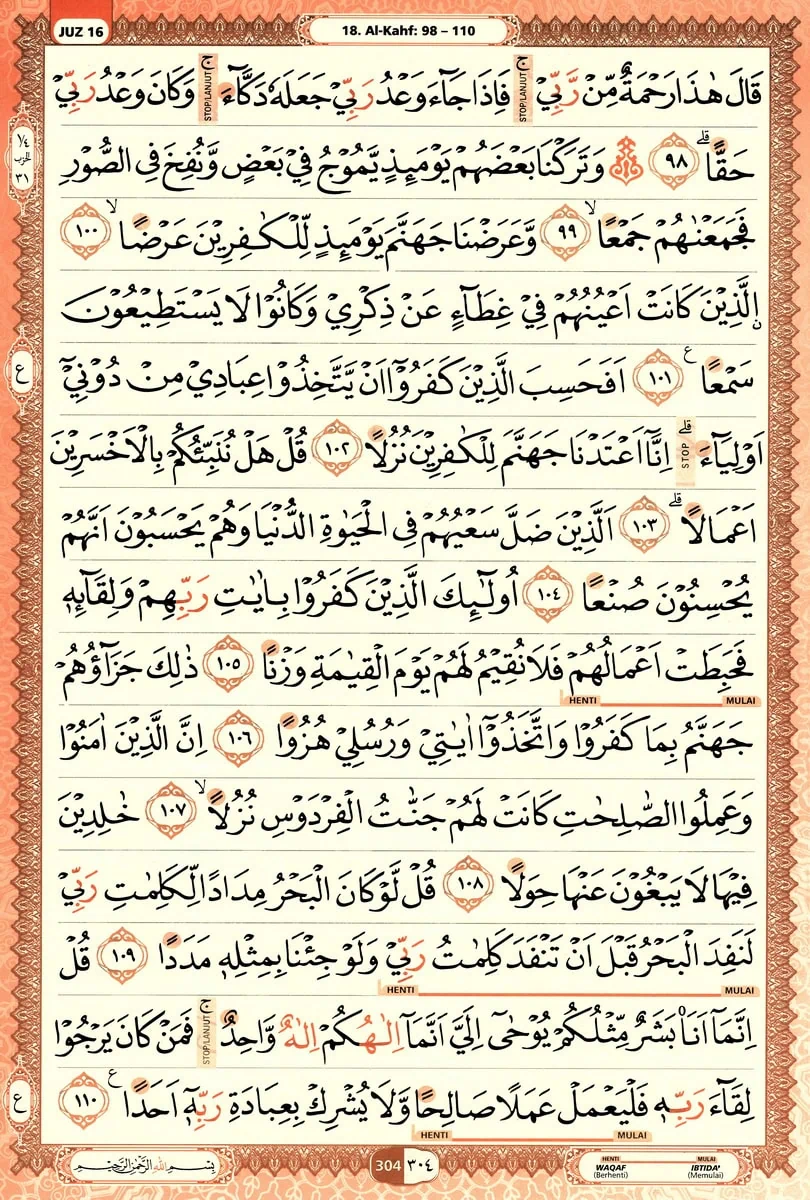 JUZ 16
18. Al-Kahf: 98 – 110
١/٤ الحزب ٣١
قَالَ هٰذَا رَحْمَةٌ مِّنْ رَّبِّيْۚ STOP/LANJUT فَاِذَا جَاۤءَ وَعْدُ رَبِّيْ جَعَلَهٗ دَكَّاۤءَۚ STOP/LANJUT وَكَانَ وَعْدُ رَبِّيْ
حَقًّاۗ ٩٨ ۞ وَتَرَكْنَا بَعْضَهُمْ يَوْمَىِٕذٍ يَّمُوْجُ فِيْ بَعْضٍ وَّنُفِخَ فِى الصُّوْرِ
فَجَمَعْنٰهُمْ جَمْعًاۙ ٩٩ وَّعَرَضْنَا جَهَنَّمَ يَوْمَىِٕذٍ لِّلْكٰفِرِيْنَ عَرْضًاۙ ١٠٠
ۨالَّذِيْنَ كَانَتْ اَعْيُنُهُمْ فِيْ غِطَاۤءٍ عَنْ ذِكْرِيْ وَكَانُوْا لَا يَسْتَطِيْعُوْنَ
سَمْعًا ࣖ ١٠١ اَفَحَسِبَ الَّذِيْنَ كَفَرُوْٓا اَنْ يَّتَّخِذُوْا عِبَادِيْ مِنْ دُوْنِيْٓ
ع
اَوْلِيَاۤءَۗ STOP اِنَّآ اَعْتَدْنَا جَهَنَّمَ لِلْكٰفِرِيْنَ نُزُلًا ١٠٢ قُلْ هَلْ نُنَبِّئُكُمْ بِالْاَخْسَرِيْنَ
اَعْمَالًاۗ ١٠٣ اَلَّذِيْنَ ضَلَّ سَعْيُهُمْ فِى الْحَيٰوةِ الدُّنْيَا وَهُمْ يَحْسَبُوْنَ اَنَّهُمْ
يُحْسِنُوْنَ صُنْعًا ١٠٤ اُولٰۤىِٕكَ الَّذِيْنَ كَفَرُوْا بِاٰيٰتِ رَبِّهِمْ وَلِقَاۤىِٕهٖ
فَحَبِطَتْ اَعْمَالُهُمْ فَلَا نُقِيْمُ لَهُمْ يَوْمَ الْقِيٰمَةِ وَزْنًا ١٠٥ ذٰلِكَ جَزَاۤؤُهُمْ
HENTI MULAI
جَهَنَّمُ بِمَا كَفَرُوْا وَاتَّخَذُوْٓا اٰيٰتِيْ وَرُسُلِيْ هُزُوًا ١٠٦ اِنَّ الَّذِيْنَ اٰمَنُوْا
وَعَمِلُوا الصّٰلِحٰتِ كَانَتْ لَهُمْ جَنّٰتُ الْفِرْدَوْسِ نُزُلًاۙ ١٠٧ خٰلِدِيْنَ
فِيْهَا لَا يَبْغُوْنَ عَنْهَا حِوَلًا ١٠٨ قُلْ لَّوْ كَانَ الْبَحْرُ مِدَادًا لِّكَلِمٰتِ رَبِّيْ
لَنَفِدَ الْبَحْرُ قَبْلَ اَنْ تَنْفَدَ كَلِمٰتُ رَبِّيْ وَلَوْ جِئْنَا بِمِثْلِهٖ مَدَدًا ١٠٩ قُلْ
HENTI MULAI
اِنَّمَآ اَنَا۠ بَشَرٌ مِّثْلُكُمْ يُوْحٰٓى اِلَيَّ اَنَّمَآ اِلٰهُكُمْ اِلٰهٌ وَّاحِدٌۚ STOP/LANJUT فَمَنْ كَانَ يَرْجُوْا
لِقَاۤءَ رَبِّهٖ فَلْيَعْمَلْ عَمَلًا صَالِحًا وَّلَا يُشْرِكْ بِعِبَادَةِ رَبِّهٖٓ اَحَدًا ࣖ ١١٠
ع
HENTI MULAI
بِسْمِ اللهِ الرَّحْمٰنِ الرَّحِيْمِ
304 ٣٠٤
HENTI WAQAF (Berhenti)
MULAI IBTIDA' (Memulai)